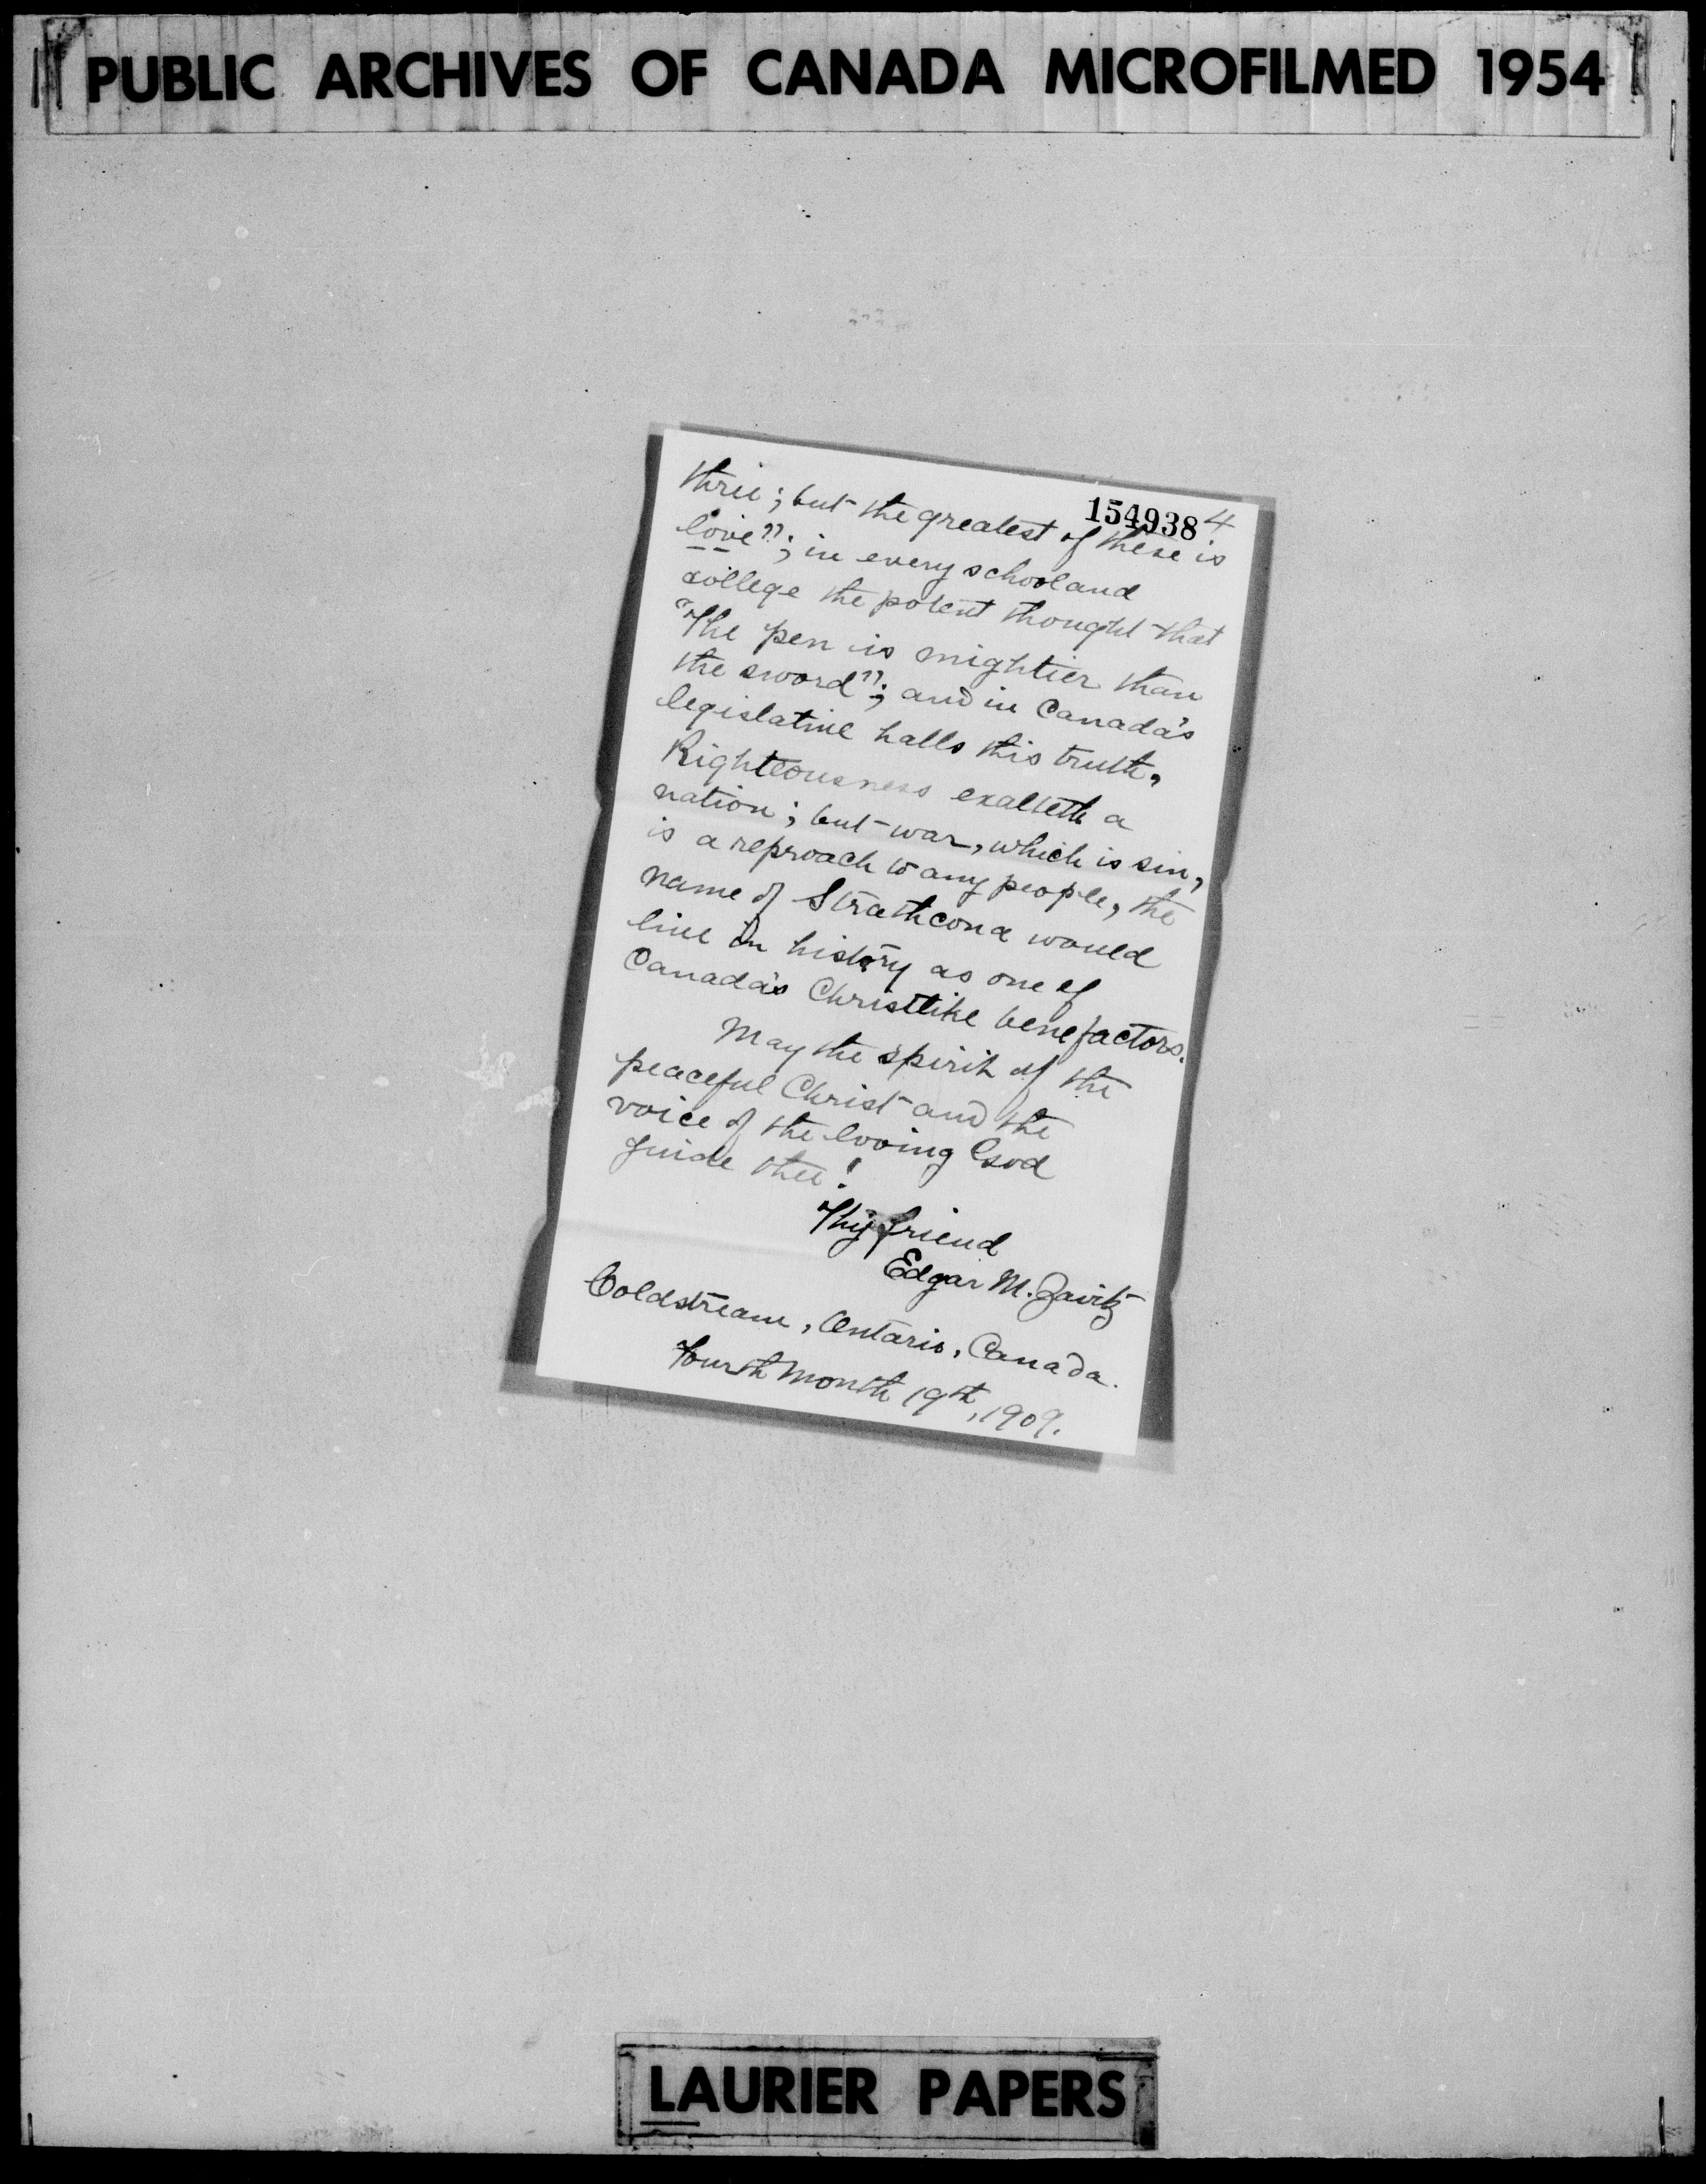 PUBLIC ARCHIVES OF CANADA MICROFILMED 1954
154938 4
three; but the greatest of these is
love"; in every school and
college the potent thought that
"The pen is mightier than
the sword"; and in Canada's
legislative halls this truth,
Righteousness exalteth a
nation; but war, which is sin,
is a reproach to any people, the
name of Strathcona would
live in history as one of
Canada's Christlike benefactors.
May the spirit of the
peaceful Christ and the
voice of the loving God
guide thee!
Thy friend
Edgar M. Zavitz
Coldstream, Ontario, Canada.
Fourth Month 19th, 1909.
LAURIER PAPERS